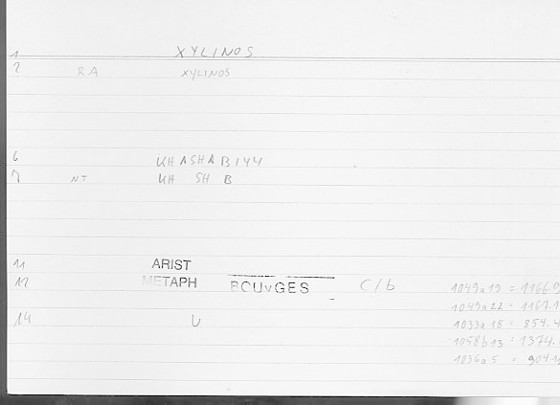 1 XYLINOS
2 RA XYLINOS
6 KHASHABIYY
7 NT KH SH B
11 ARIST
12 METAPH BOUYGES C/b 1049a19 = 1166.
1049a22 = 1167.1
14 U 1033a18 = 854.4
1058b13 = 1374.
1036a5 = 904.1